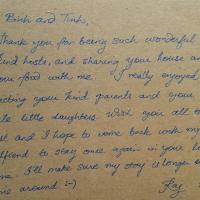 Binh and Tinh,
Thank you for being such wonderful
kind hosts, and sharing your house and
your food with me. I really enjoyed
meeting your kind parents and your
little daughters. Wish you all
and I hope to come back with my
to stay once again in your
I'll make sure my stay is longer
me around :-)